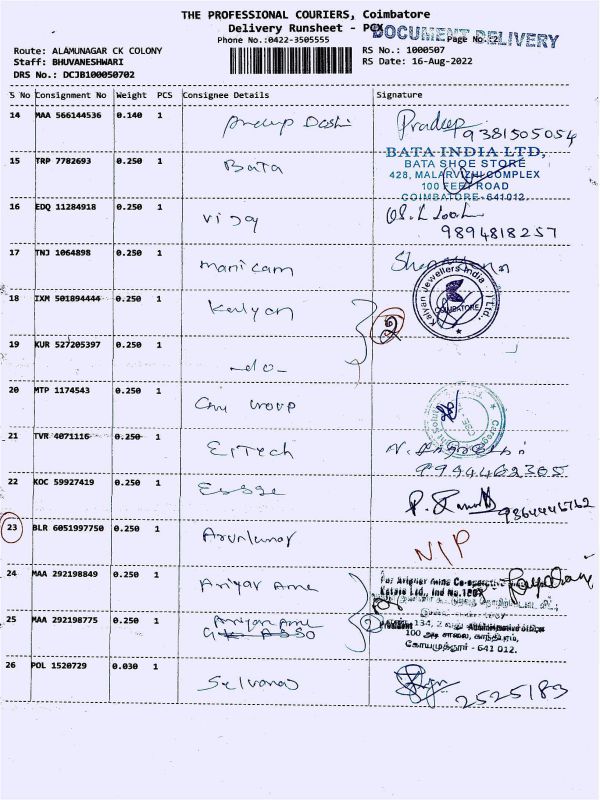 THE PROFESSIONAL COURIERS, Coimbatore
Delivery Runsheet - PCX
DOCUMENT DELIVERY
Phone No.:0422-3505555 Page No.:2
Route: ALAMUNAGAR CK COLONY RS No.: 1000507
Staff: BHUVANESHWARI RS Date: 16-Aug-2022
DRS No.: DCJB100050702
S No Consignment No Weight PCS Consignee Details Signature
14 MAA 566144536 0.140 1 Pradeep 9381505054
15 TRP 7782693 0.250 1 Bata
BATA INDIA LTD,
BATA SHOE STORE
428, MALARVIZHI COMPLEX
100 FEET ROAD
COIMBATORE-641012.
16 EDQ 11284918 0.250 1 Vijay
9894818257
17 TNJ 1064898 0.250 1 manicam
18 IXM 501894444 0.250 1 Kalyan 2
Kalyan Jewellers India Ltd.,
COIMBATORE
19 KUR 527205397 0.250 1 -do-
20 MTP 1174543 0.250 1
21 TVR 4071116 0.250 1 EiTech
9994462305
22 KOC 59927419 0.250 1 Essge
9864446762
23 BLR 6051997750 0.250 1 Arunkumar NIP
24 MAA 292198849 0.250 1 Ariyar Ame
25 MAA 292198775 0.250 1 Ariyar Ame 2
134, 2
100 அடி சாலை, காந்திபுரம்,
கோயமுத்தூர் - 641 012.
26 POL 1520729 0.030 1 Selvaraj 2525183